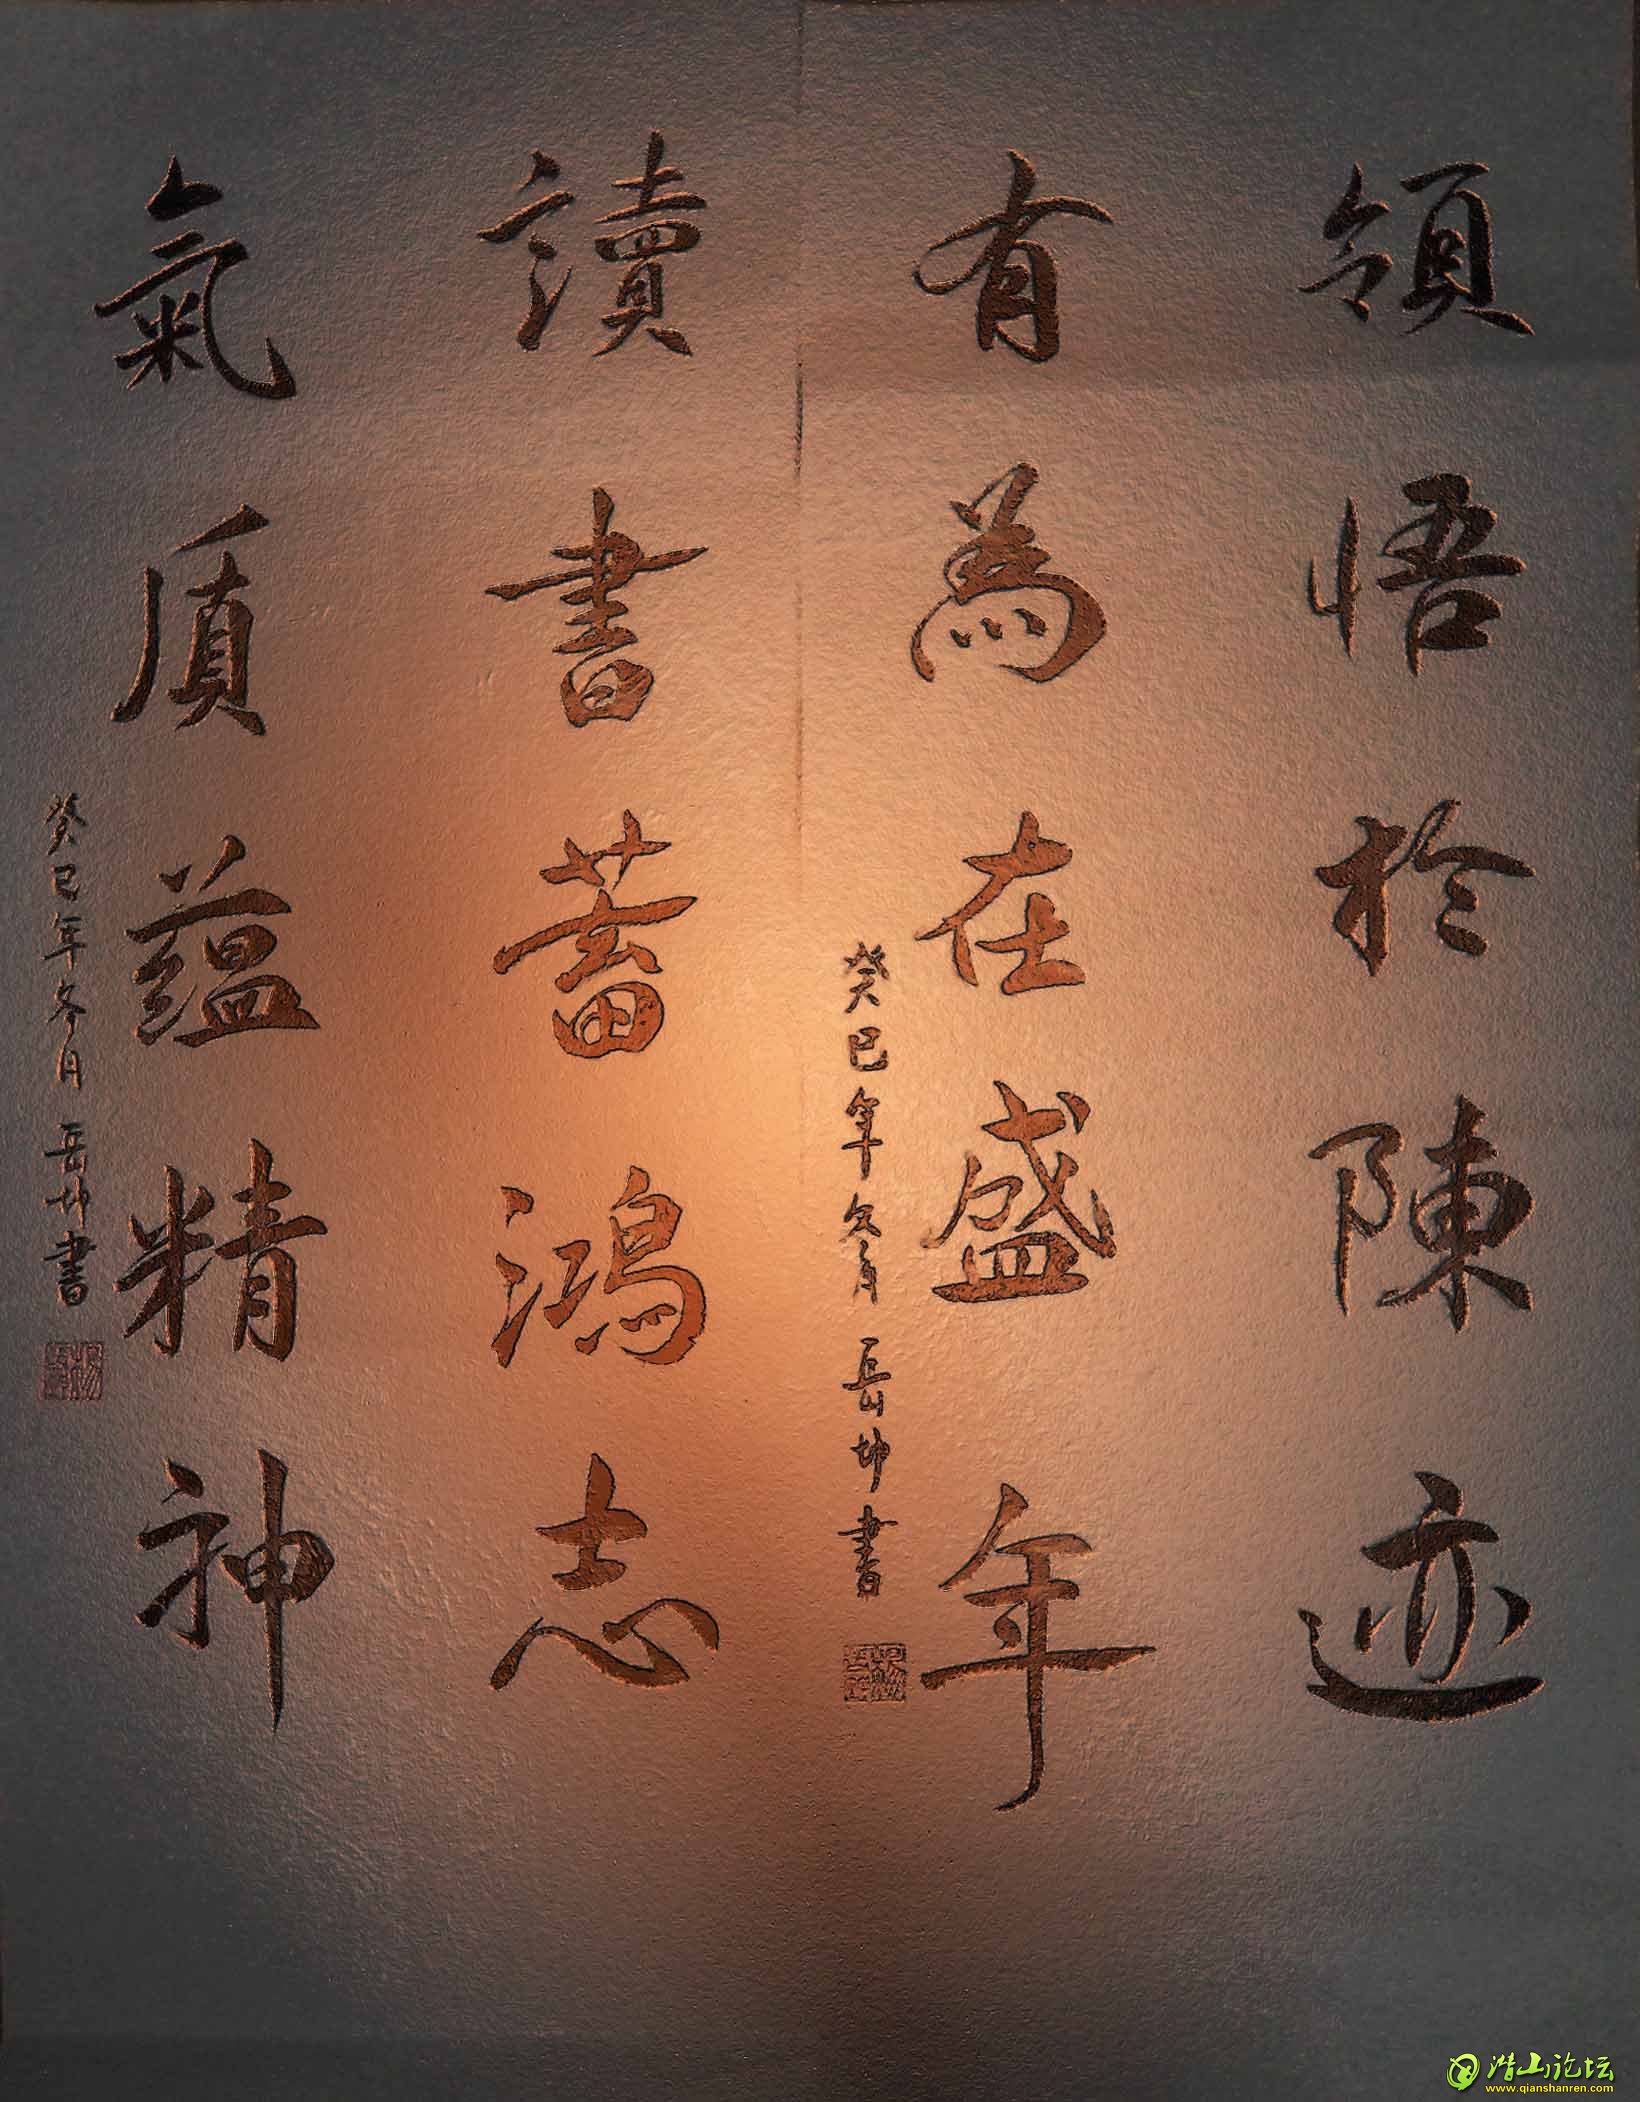 領悟於陳迹
有為在盛年
癸巳年冬月 岳坤書
讀書蓄鴻志
氣质蕴精神
癸巳年冬月 岳坤書
潜山论坛
www.qianshanren.com